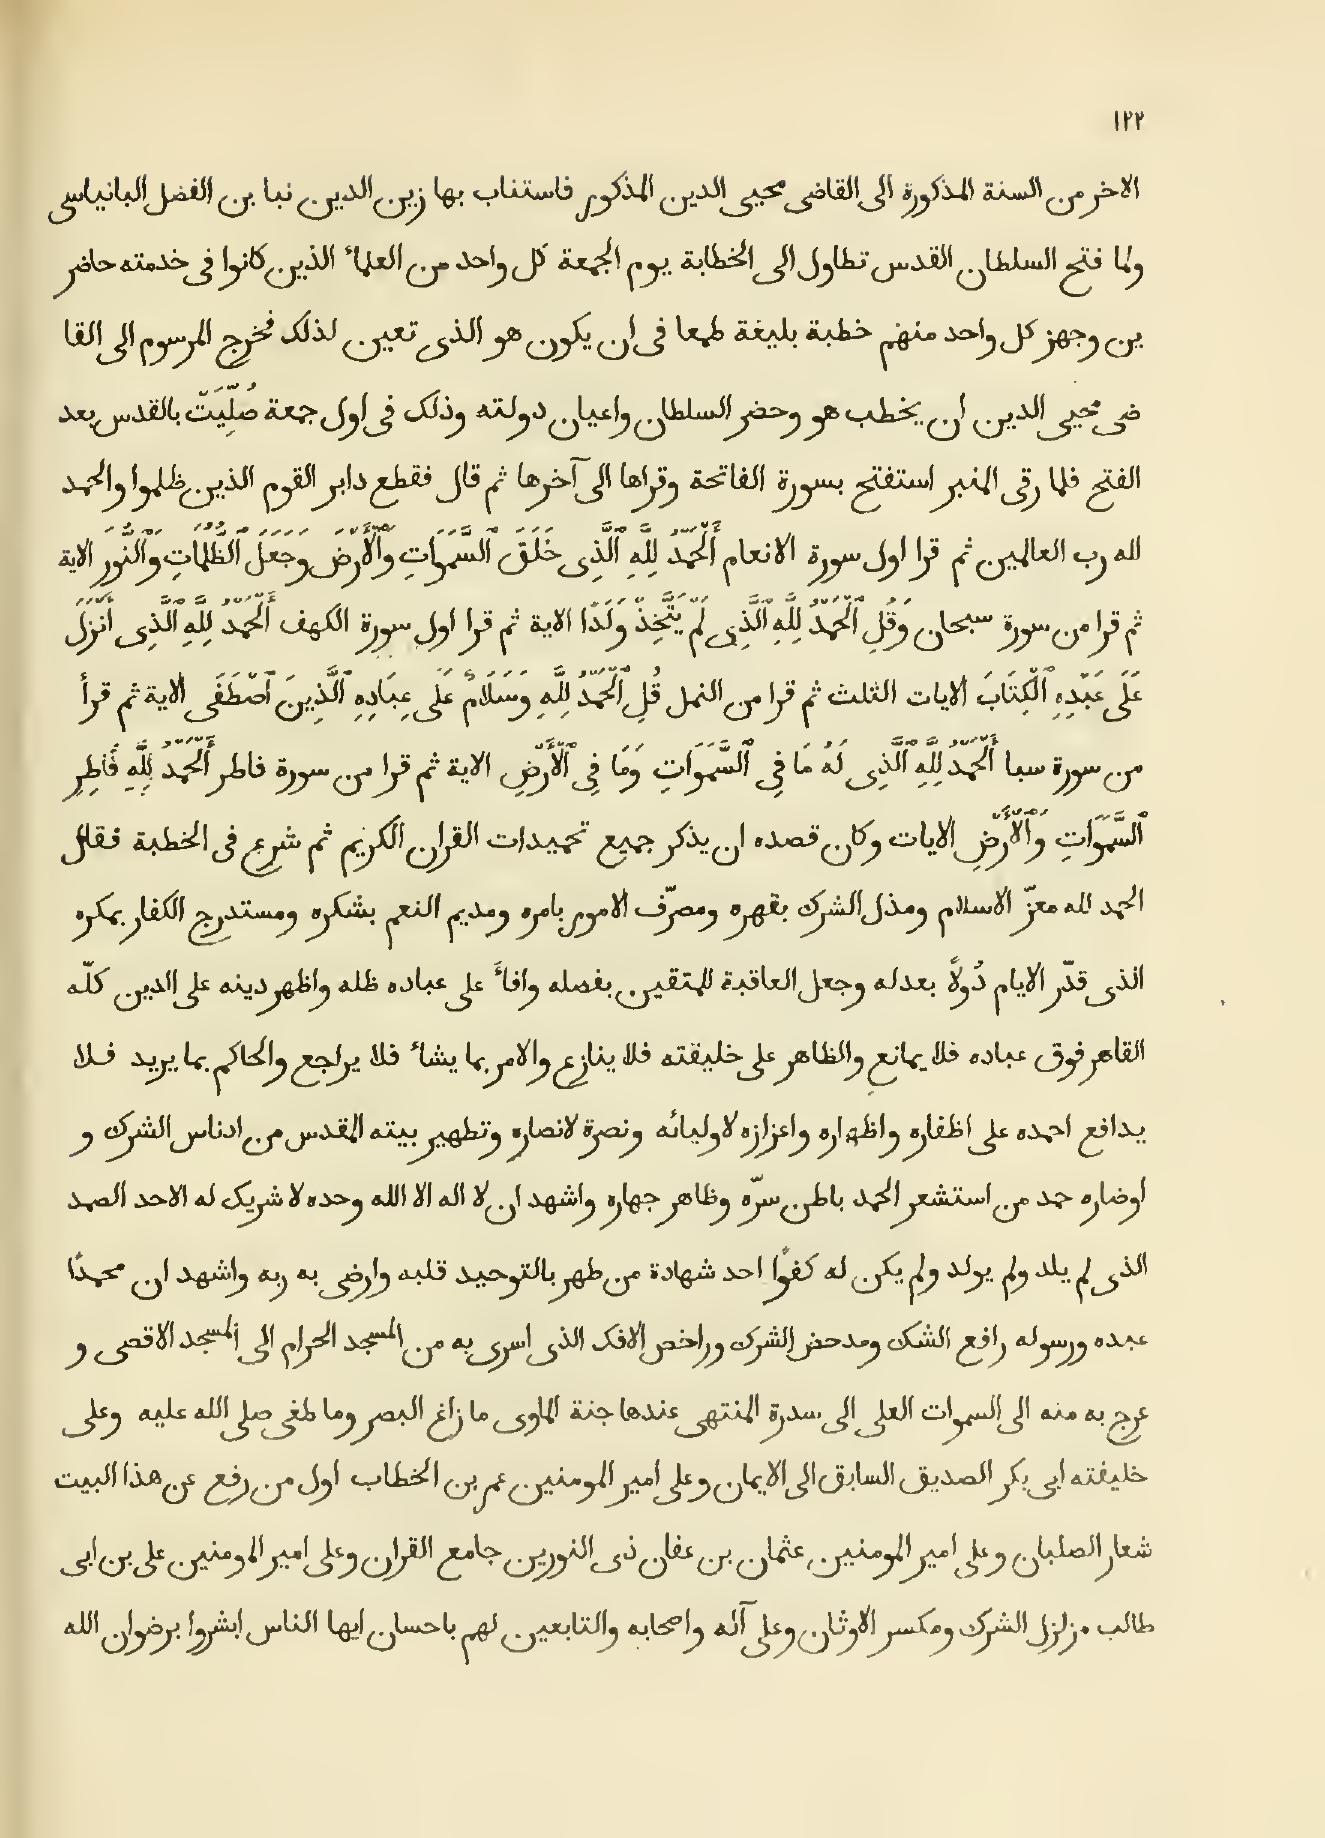 ١٢٢
الاخر من السنة المذكورة الى القاضى محيى الدين المذكور فاستناب بها زين الدين نبا بن الفضل البانياسى
ولما فتح السلطان القدس تطاول الى الخطابة يوم الجمعة كل واحد من العلماء الذين كانوا فى خدمته حاضر
ين وجهز كل واحد منهم خطبة بليغة طمعا فى ان يكون هو الذى تعين لذلك فخرج المرسوم الى القا
ضى محيى الدين ان يخطب هو وحضر السلطان واعيان دولته وذلك فى اول جمعة صُلِّيَتْ بالقدس بعد
الفتح فلما رقى المنبر استفتح بسورة الفاتحة وقراها الى آخرها ثم قال فقطع دابر القوم الذين ظلموا والحمد
لله رب العالمين ثم قرا اول سورة الانعام أَلْحَمْدُ لِلَّهِ ٱلَّذِى خَلَقَ ٱلسَّمَوَاتِ وَٱلْأَرْضَ وَجَعَلَ ٱلظُّلُمَاتِ وَٱلنُّورَ الاية
ثم قرا من سورة سبحان وَقُلِ ٱلْحَمْدُ لِلَّهِ ٱلَّذِى لَمْ يَتَّخِذْ وَلَدًا الاية ثم قرا اول سورة الكهف أَلْحَمْدُ لِلَّهِ ٱلَّذِى أَنْزَلَ
عَلَى عَبْدِهِ ٱلْكِتَابَ الايات الثلث ثم قرا من النمل قُلِ ٱلْحَمْدُ لِلَّهِ وَسَلَامٌ عَلَى عِبَادِهِ ٱلَّذِينَ ٱصْطَفَى الاية ثم قرأ
من سورة سبا أَلْحَمْدُ لِلَّهِ ٱلَّذِى لَهُ مَا فِى ٱلسَّمَوَاتِ وَمَا فِى ٱلْأَرْضِ الاية ثم قرا من سورة فاطر أَلْحَمْدُ لِلَّهِ فَاطِرِ
ٱلسَّمَوَاتِ وَٱلْأَرْضِ الايات وكان قصده ان يذكر جميع تحميدات القران الكريم ثم شرع فى الخطبة فقال
الحمد لله معزّ الاسلام ومذل الشرك بقهره ومصرّف الامور بامره ومديم النعم بشكره ومستدرج الكفار بمكره
الذى قدّر الايام دُولًا بعدله وجعل العاقبة للمتقين بفضله وافاءَ على عباده ظله واظهر دينه على الدين كلّه
القاهر فوق عباده فلا يمانع والظاهر على خليقته فلا ينازع والامر بما يشاء فلا يراجع والحاكم بما يريد فلا
يدافع احمده على اظفاره واظهاره واعزازه لاوليائه ونصرة لانصاره وتطهير بيته المقدس من ادناس الشرك و
اوضاره حمد من استشعر الحمد باطن سرّه وظاهر جهاره واشهد ان لا اله الا الله وحده لا شريك له الاحد الصمد
الذى لم يلد ولم يولد ولم يكن له كفوًا احد شهادة من طهر بالتوحيد قلبه وارضى به ربه واشهد ان محمدًا
عبده ورسوله رافع الشك ومدحض الشرك وراخص الافك الذى اسرى به من المسجد الحرام الى المسجد الاقصى و
عرج به منه الى السموات العلى الى سدرة المنتهى عندها جنة الماوى ما زاغ البصر وما طغى صلى الله عليه وعلى
خليفته ابى بكر الصديق السابق الى الايمان وعلى امير المومنين عمر بن الخطاب اول من رفع عن هذا البيت
شعار الصلبان وعلى امير المومنين عثمان بن عفان ذى النورين جامع القران وعلى امير المومنين على بن ابى
طالب مزلزل الشرك ومكسر الاوثان وعلى آله واصحابه والتابعين لهم باحسان ايها الناس ابشروا برضوان الله